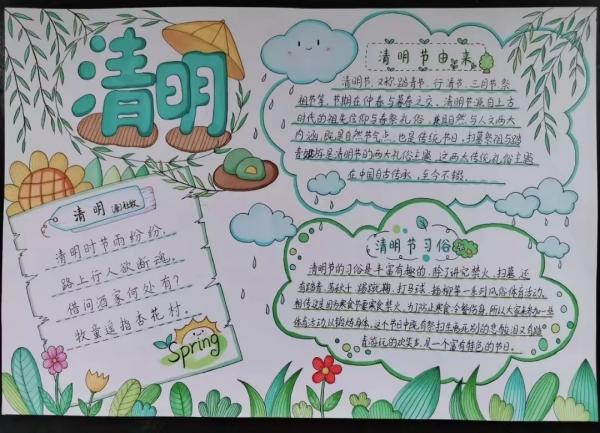 清明
清明
清明时节雨纷纷，
路上行人欲断魂。
借问酒家何处有？
牧童遥指杏花村。
Spring
清明节由来
清明节，又称踏青节、行清节、三月节、祭
祖节等，节期在仲春与暮春之交。清明节源自上古
时代的祖先信仰与春祭礼俗，兼具自然与人文两大
内涵，既是自然节气点，也是传统节日，扫墓祭祖与踏
青郊游是清明节的两大礼俗主题，这两大传统礼俗主题
在中国自古传承，至今不辍。
清明节习俗
清明节的习俗是丰富有趣的，除了讲究禁火、扫墓，还
有踏青、荡秋千、蹴鞠、打马球、插柳等一系列风俗体育活动。
相传这是因为寒食节要寒食禁火，为了防止寒食冷餐伤身，所以大家来参加一些
体育活动，以锻炼身体。这个节日中既有祭扫生离死别的悲酸泪，又有踏
青游玩的欢笑声，是一个富有特色的节日。